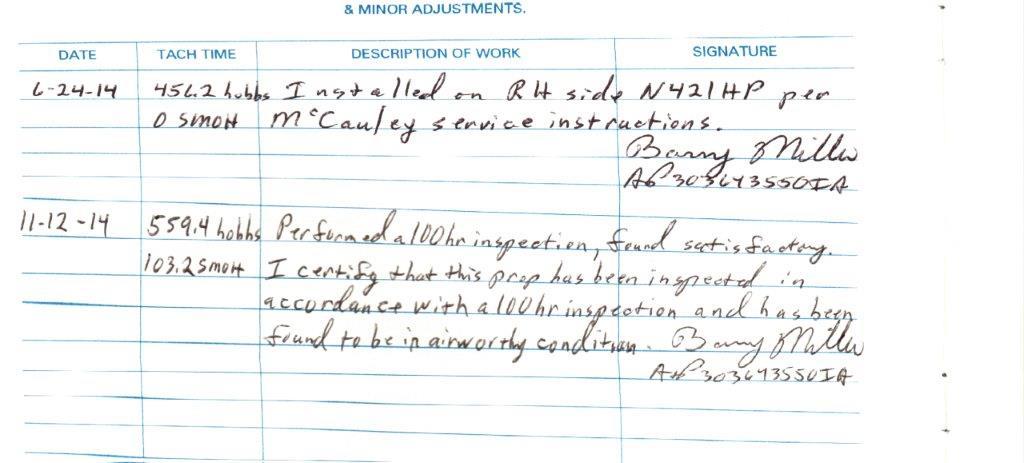 & MINOR ADJUSTMENTS.
DATE TACH TIME DESCRIPTION OF WORK SIGNATURE
6-24-14 456.2 hobbs Installed on RH side N421HP per
0 SMOH McCauley service instructions.
Barry Miller
AP303643550IA
11-12-14 559.4 hobbs Performed a 100hr inspection, found satisfactory.
103.2 SMOH I certify that this prop has been inspected in
accordance with a 100hr inspection and has been
found to be in airworthy condition. Barry Miller
A+P303643550IA